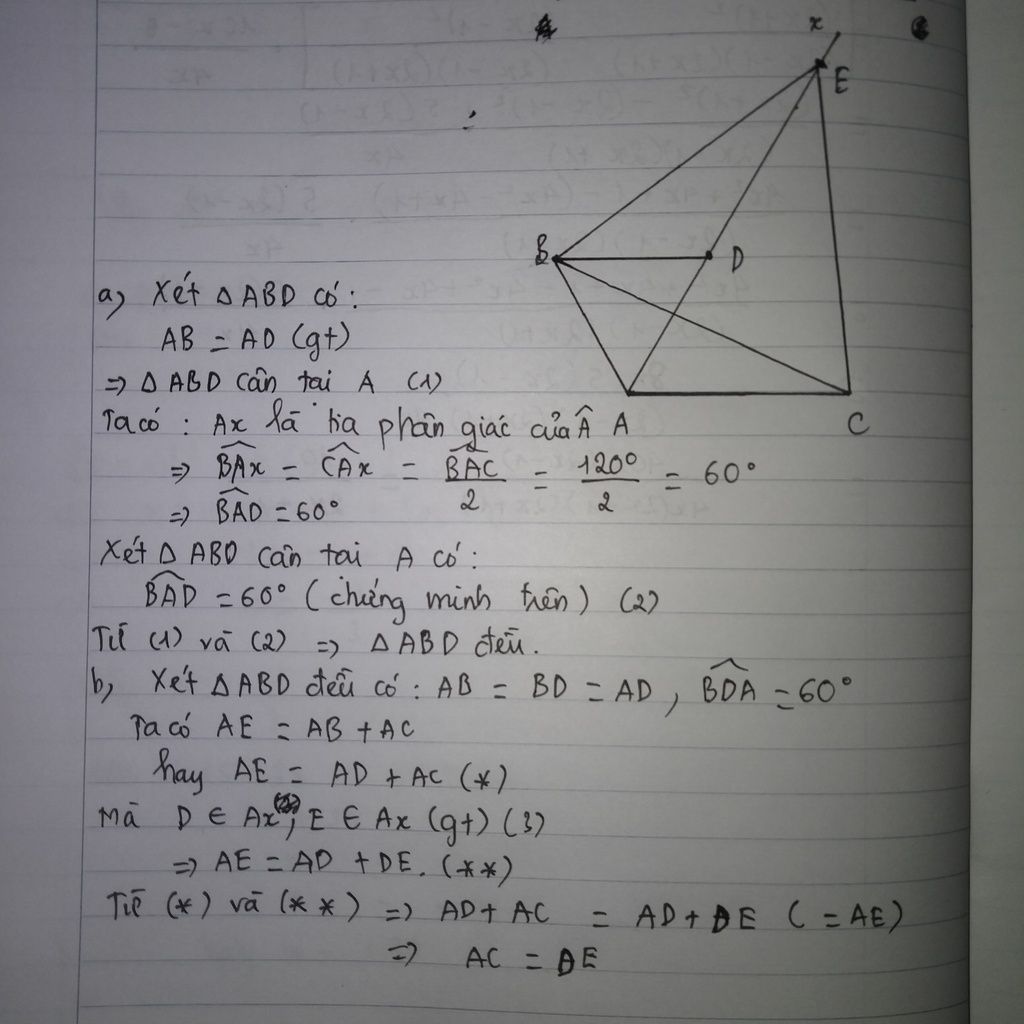 x
E
B
D
C
a, Xét △ABD có:
AB = AD (gt)
=> △ABD cân tại A (1)
Ta có : Ax là tia phân giác của Â A
=> \widehat{BAx} = \widehat{CAx} = \frac{\widehat{BAC}}{2} = \frac{120°}{2} = 60°
=> \widehat{BAD} = 60°
Xét △ABD cân tại A có:
\widehat{BAD} = 60° (chứng minh trên) (2)
Từ (1) và (2) => △ABD đều.
b, Xét △ABD đều có : AB = BD = AD, \widehat{BDA} = 60°
Ta có AE = AB + AC
hay AE = AD + AC (*)
Mà D ∈ Ax, E ∈ Ax (gt) (3)
=> AE = AD + DE. (**)
Từ (*) và (**) => AD + AC = AD + DE (= AE)
=> AC = DE